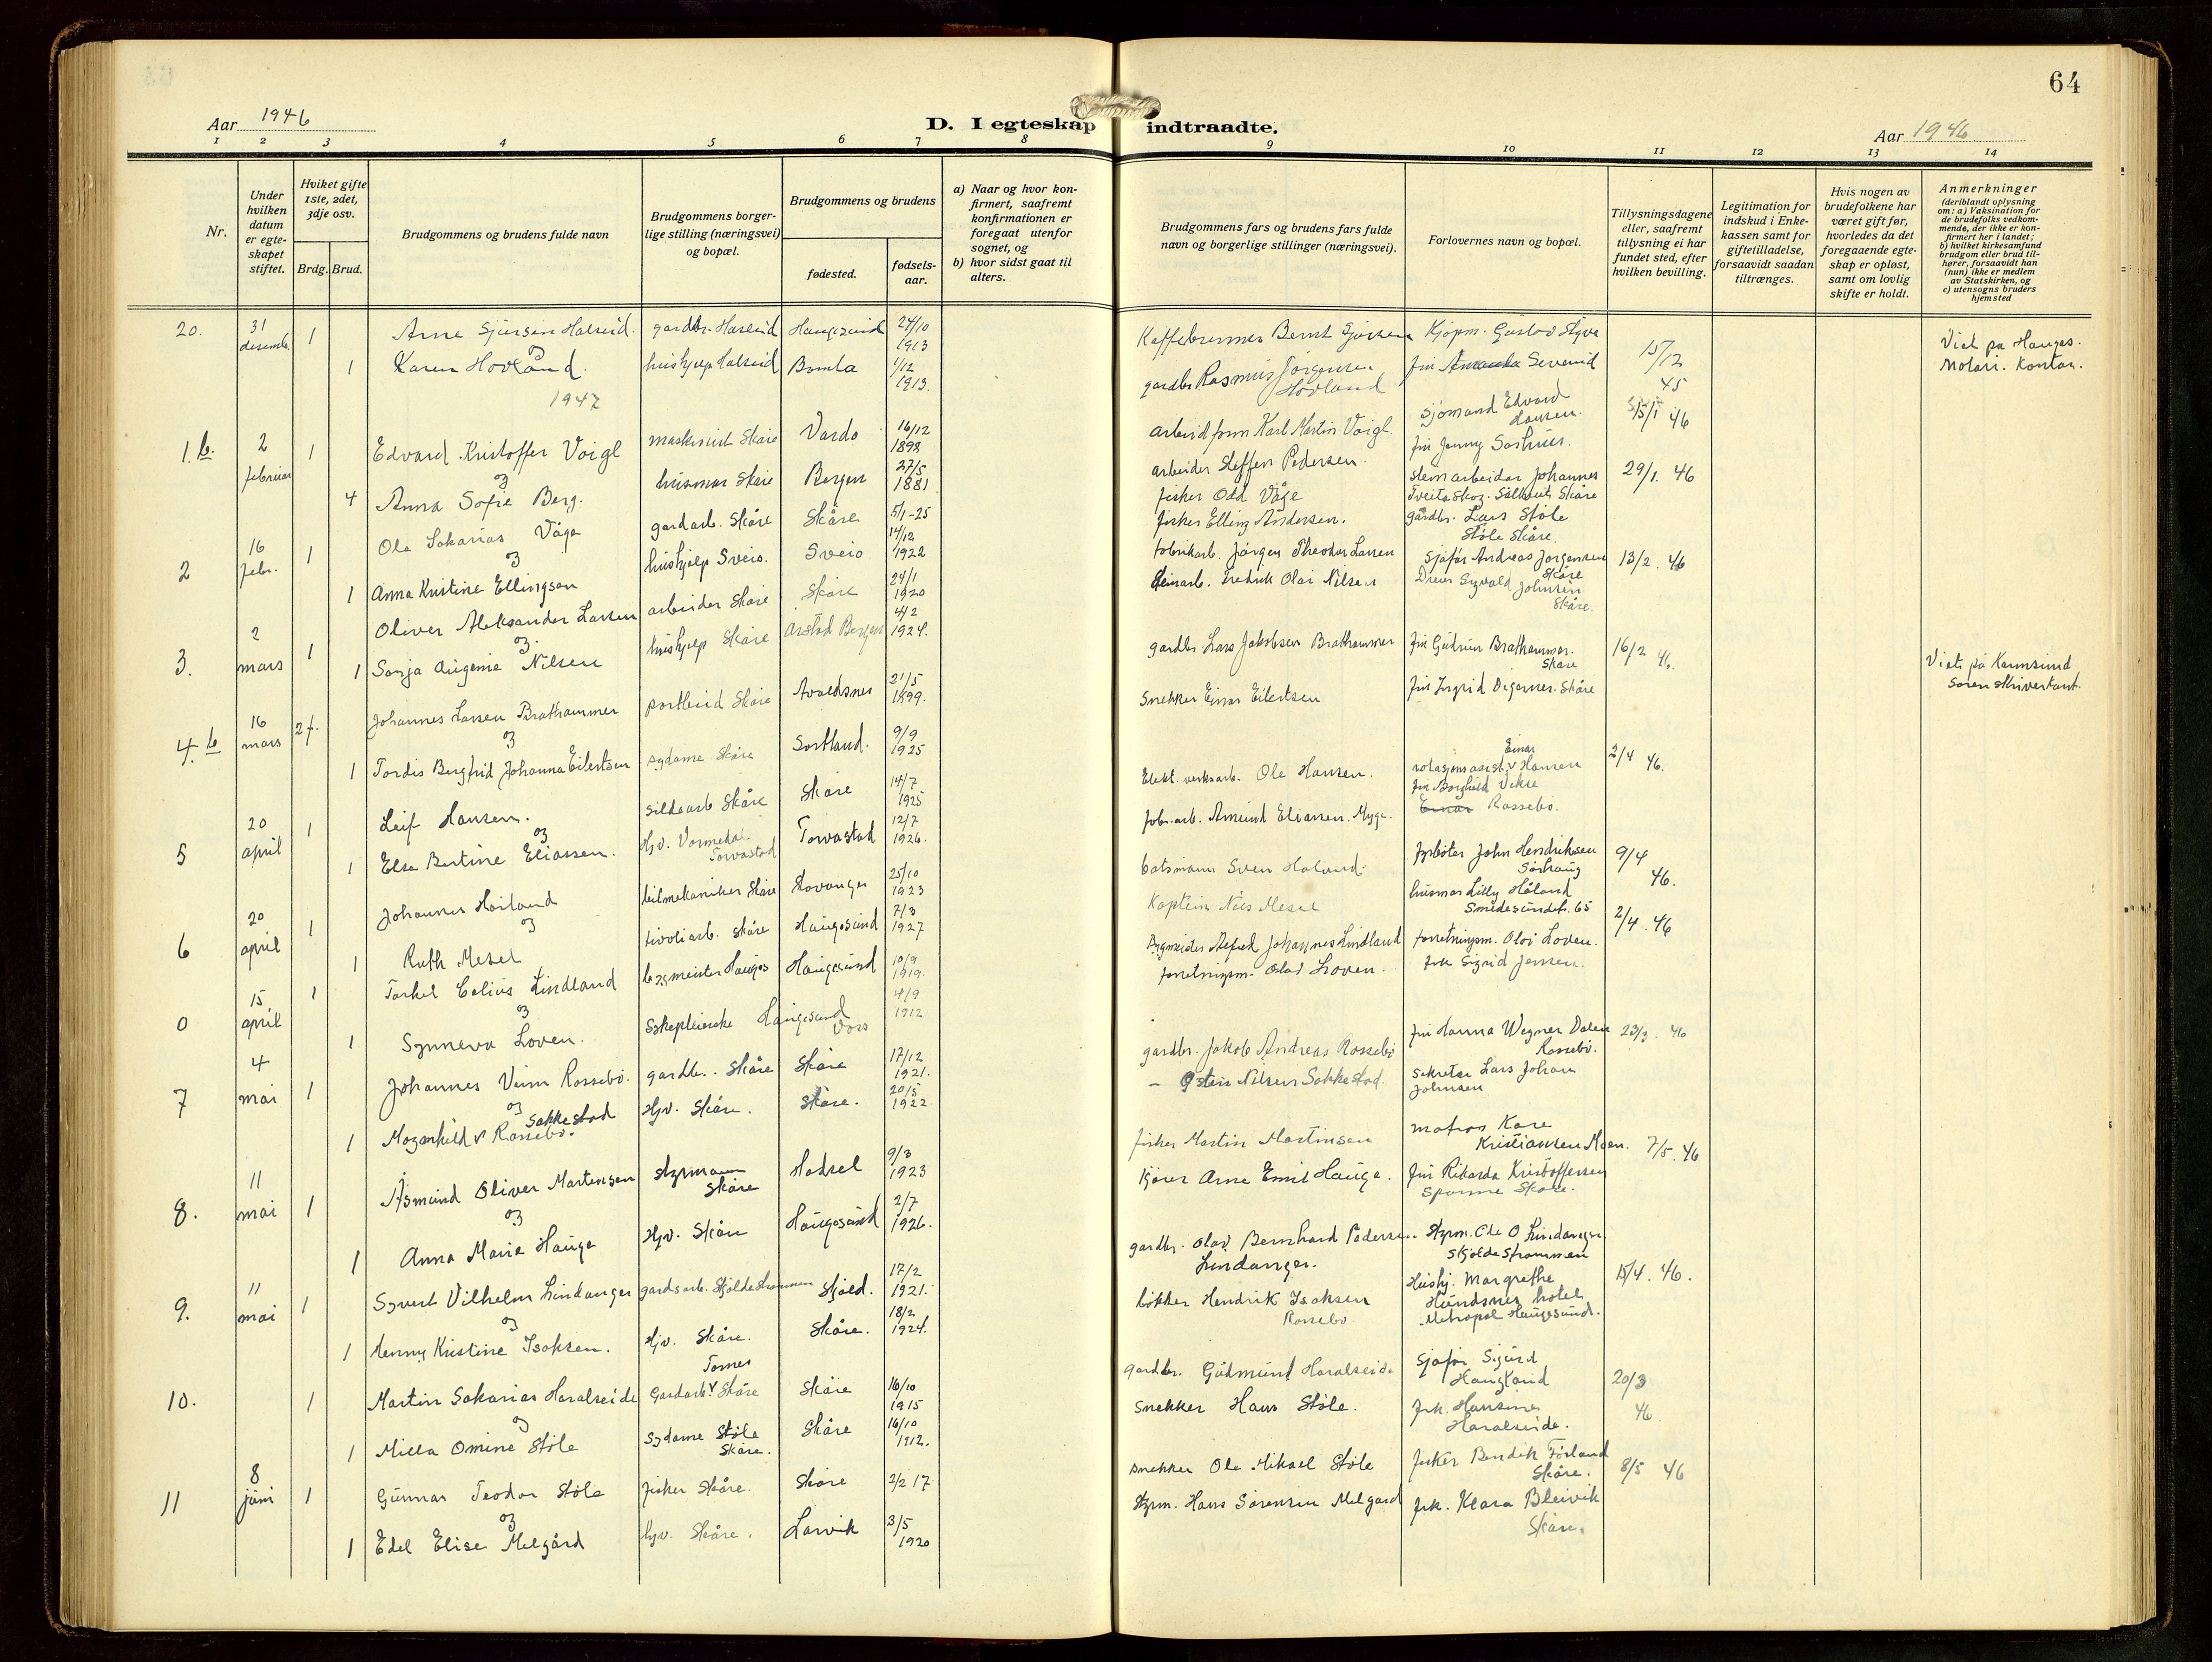 64
Aar 1946
D. I egteskap indtraadte.
Aar 1946
1 2 3 4 5 6 7 8 9 10 11 12 13 14
Nr.
Under hvilken datum er egteskapet stiftet.
Hviket gifte 1ste, 2det, 3dje osv.
Brdg. Brud.
Brudgommens og brudens fulde navn
Brudgommens borgerlige stilling (næringsvei) og bopæl.
Brudgommens og brudens
fødested.
fødselsaar.
a) Naar og hvor konfirmert, saafremt konfirmationen er foregaat utenfor sognet, og
b) hvor sidst gaat til alters.
Brudgommens fars og brudens fars fulde navn og borgerlige stillinger (næringsvei).
Forlovernes navn og bopæl.
Tillysningsdagene eller, saafremt tillysning ei har fundet sted, efter hvilken bevilling.
Legitimation for indskud i Enkekassen samt for giftetilladelse, forsaavidt saadan tiltrænges.
Hvis nogen av brudefolkene har været gift før, hvorledes da det foregaaende egteskap er opløst, samt om lovlig skifte er holdt.
Anmerkninger (deriblandt oplysning om: a) Vaksination for de brudefolks vedkommende, der ikke er konfirmert her i landet; b) hvilket kirkesamfund brudgom eller brud tilhører, forsaavidt han (hun) ikke er medlem av Statskirken, og c) utensogns bruders hjemsted
20. 31 desemb. 1 Arne Sjursen Halseid. gardbr. Halseid Haugesund 24/10 1913 Bernt Sjursen Kjøpm. Gustav Styve 15/12 45 Viet på Hauges. Notari. Kontor.
og
1 Karen Hovland. hushjelp Halseid Bømla 1/12 1913. gardbr Rasmus Jørgensen Hovland fru Amanda Sevenid
1947
1 b. 2 februar 1 Edvard Kristoffer Voigl maskinist Skåre Vardø 16/12 1892 Karl Martin Voigl. Sjømand Edvard Hansen. 15/1 46
og
4 Anna Sofie Berg. husmor Skåre Bergen 27/5 1881 arbeider Steffen Pedersen. fru Jenny Sørhus.
2 16 febr. 1 Ole Sakarias Våge gardarb. Skåre Skåre 5/1-25 fisker Odd Våge stemarbeider Johannes Skåre 29/1. 46
og
1 Anna Kristine Ellingsen hushjelp Sveio. Sveio 14/12 1922 fisker Elling Andersen. gårdbr. Lars Støle Støle Skåre.
3. 2 mars 1 Oliver Aleksander Larsen arbeider Skåre Skåre 24/1 1920 fabrikarb. Jørgen Theodor Larsen Sjåfør Andreas Jørgensen Skåre 13/2. 46
og
1 Sonja Augenie Nilsen hushjelp Skåre Årstad Bergen 4/2 1924. Fredrik Olai Nilsen Sigvald Johnsen Skåre.
4. b 16 mars 2 f. Johannes Larsen Brathammer postbud Skåre Avaldsnes 21/5 1899. gardbr Lars Jakobsen Brathammer fru Gudrun Brathammer. Skåre 16/2 46. Viet på Karmsund Sorenskriverkont.
og
1 Tordis Bergfrid Johanna Eilertsen sydame Skåre Sortland. 9/9 1925 Snekker Einar Eilertsen fru Ingrid Digernes. Skåre
5 20 april 1 Leif Hansen. sildearb Skåre Skåre 14/7 1925 Elekt. verksarb. Ole Hansen. Einar Hansen 2/4 46.
og
1 Elsa Bertine Eliassen. Hjv. Vormedal Torvastad Torvastad 12/7 1926. Fabr. arb. Amund Eliassen. fru Borghild Vikse Einar Rossebø.
6 20 april 1 Johannes Høiland bilmekaniker Skåre Stavanger 25/10 1923 båtsmann Sven John Hendriksen Sørhaug 9/4 46.
og
1 Ruth Mesel tivoliarb. Skåre Haugesund 7/3 1927 Kaptein Nils Mesel husmor Lilly Håland Smedesundet. 65
0 15 april 1 Torkel Celius Lindland bygmeister Hauges Haugesund 10/9 1919. Bygmeister Alfred Johannes Lindland forretningsm. Olai Loven. 2/4. 46
og
1 Synneva Loven. Sykepleierske Haugesund Voss 4/9 1912 forretningsm. Olai Loven. frk Sigrid Jensen.
7 4 mai 1 Johannes Veim Rossebø. gardbr. Skåre Skåre 17/12 1921. gardbr. Jakob Andreas Rossebø fru Hanna Wegner Dalen Rossebø. 23/3. 46
og
1 Magnhild v Sakkestad Rossebø. Hjv. Skåre. Skåre. 20/5 1922 - Østen Nilsen Sakkestad. Sekretær Lars Johan Johnsen
8. 11 mai 1 Åsmund Oliver Martensen styrmann Skåre Hadsel 9/3 1923 fisker Martin Martinsen matros Kåre Kristiansen Moen. 7/5. 46
og
1 Anna Marie Hauge Hjv. Skåre Haugesund 2/7 1926. Kjører Arne Emil Hauge. fru Rikarda Kristoffersen Spanne Skåre.
9. 11 mai 1 Syvert Vilhelm Lindanger gardsarb. Skjoldestraumen Skjold. 17/2 1921. gardbr. Olav Bernhard Pedersen Lindanger. Styrm. Ole O Lindanger. Skjoldestraumen 15/4. 46.
og
1 Henny Kristine Isaksen. Hjv. Skåre. Skåre. 18/2 1924. bøkker Hendrik Isaksen Rossebø Hushj. Margrethe Hundsnes hotel Metropol Haugesund.
10. 1 Martin Sakarias Haralseide Gardarb. v Tornes Skåre Skåre 16/10 1915 gardbr. Gudmund Haralseide Sjåfør Sigurd Haugland 20/3 46
og
1 Milla Omine Støle Sydame Støle Skåre. Skåre 16/10 1912. Snekker Hans Støle. frk. Hansine Haralseide.
11 8 juni 1 Gunnar Teodor Støle fisker Skåre. Skåre 2/2 17 snekker Ole Mikael Støle fisker Bendik Førland Skåre. 8/5 46
og
1 Edel Elise Melgård Hjv. Skåre. Larvik 3/5 1920 Styrm. Hans Sørensen Melgård frk. Klara Bleivik Skåre.